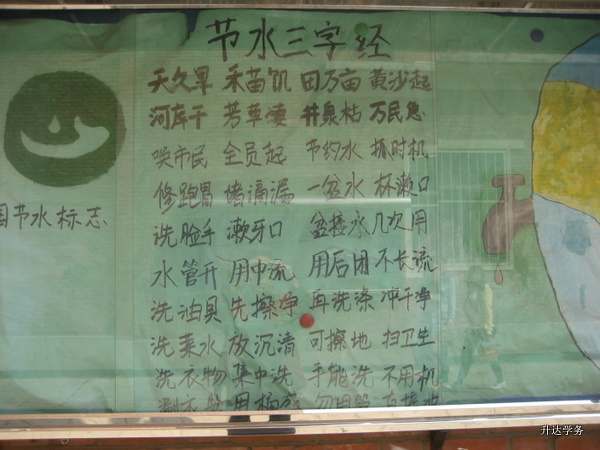 节水三字经
天久旱 禾苗饥 田万亩 黄沙起
河库干 芳草凄 井泉枯 万民急
唤市民 全员起 节约水 抓时机
修跑冒 堵滴漏 一盆水 杯漱口
洗脸手 漱牙口 盆接水 几次用
水管开 用中流 用后闭 不长流
洗油具 先擦净 再洗涤 冲干净
洗菜水 放沉清 可擦地 扫卫生
洗衣物 集中洗 手能洗 不用机
国节水标志
升达学务